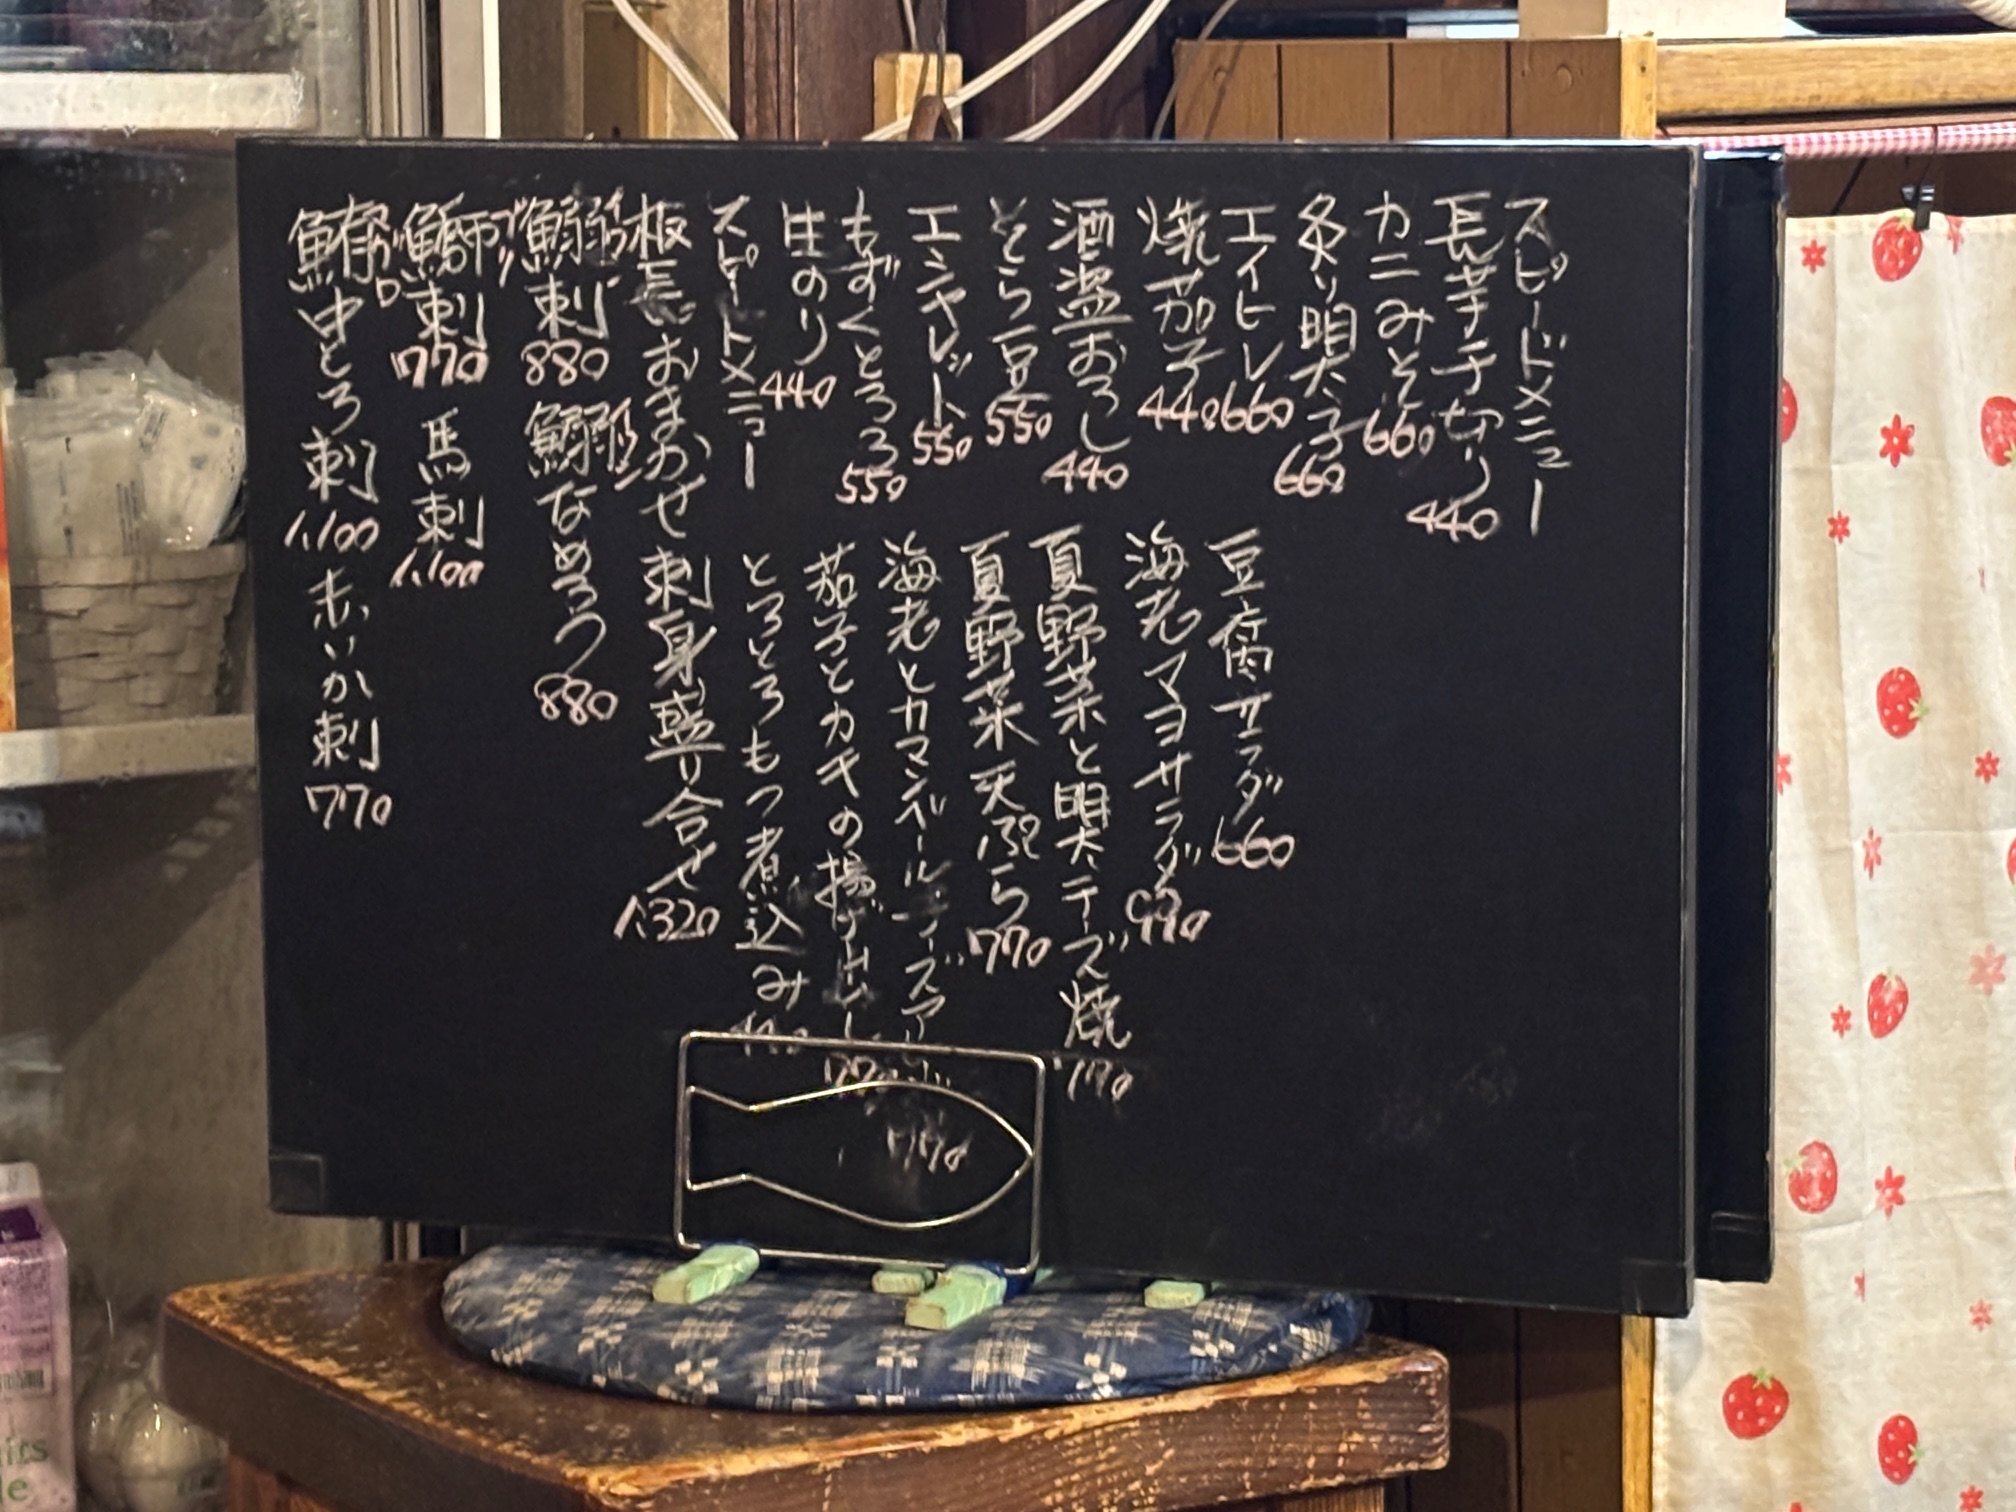 スピードメニュー
長芋千切り 440
カニみそ 660
炙り明太子 660
エイヒレ 660
焼茄子 440
酒盗おろし 440
そら豆 550
エシャレット 550
もずくとろろ 550
生のり 440
スピードメニュー
豆腐サラダ 660
海老マヨサラダ 990
夏野菜と明太チーズ焼 770
夏野菜天ぷら 770
海老とカマンベールチーズ 770
茄子とカキの揚げ出し 770
とろとろもつ煮込み
板長おまかせ 刺身盛り合せ 1,320
鰯刺 イワシ 880 鰯なめろう イワシ 880
鰤刺 ブリ 770 馬刺 1,100
鮪中とろ刺 1,100 赤いか刺 770